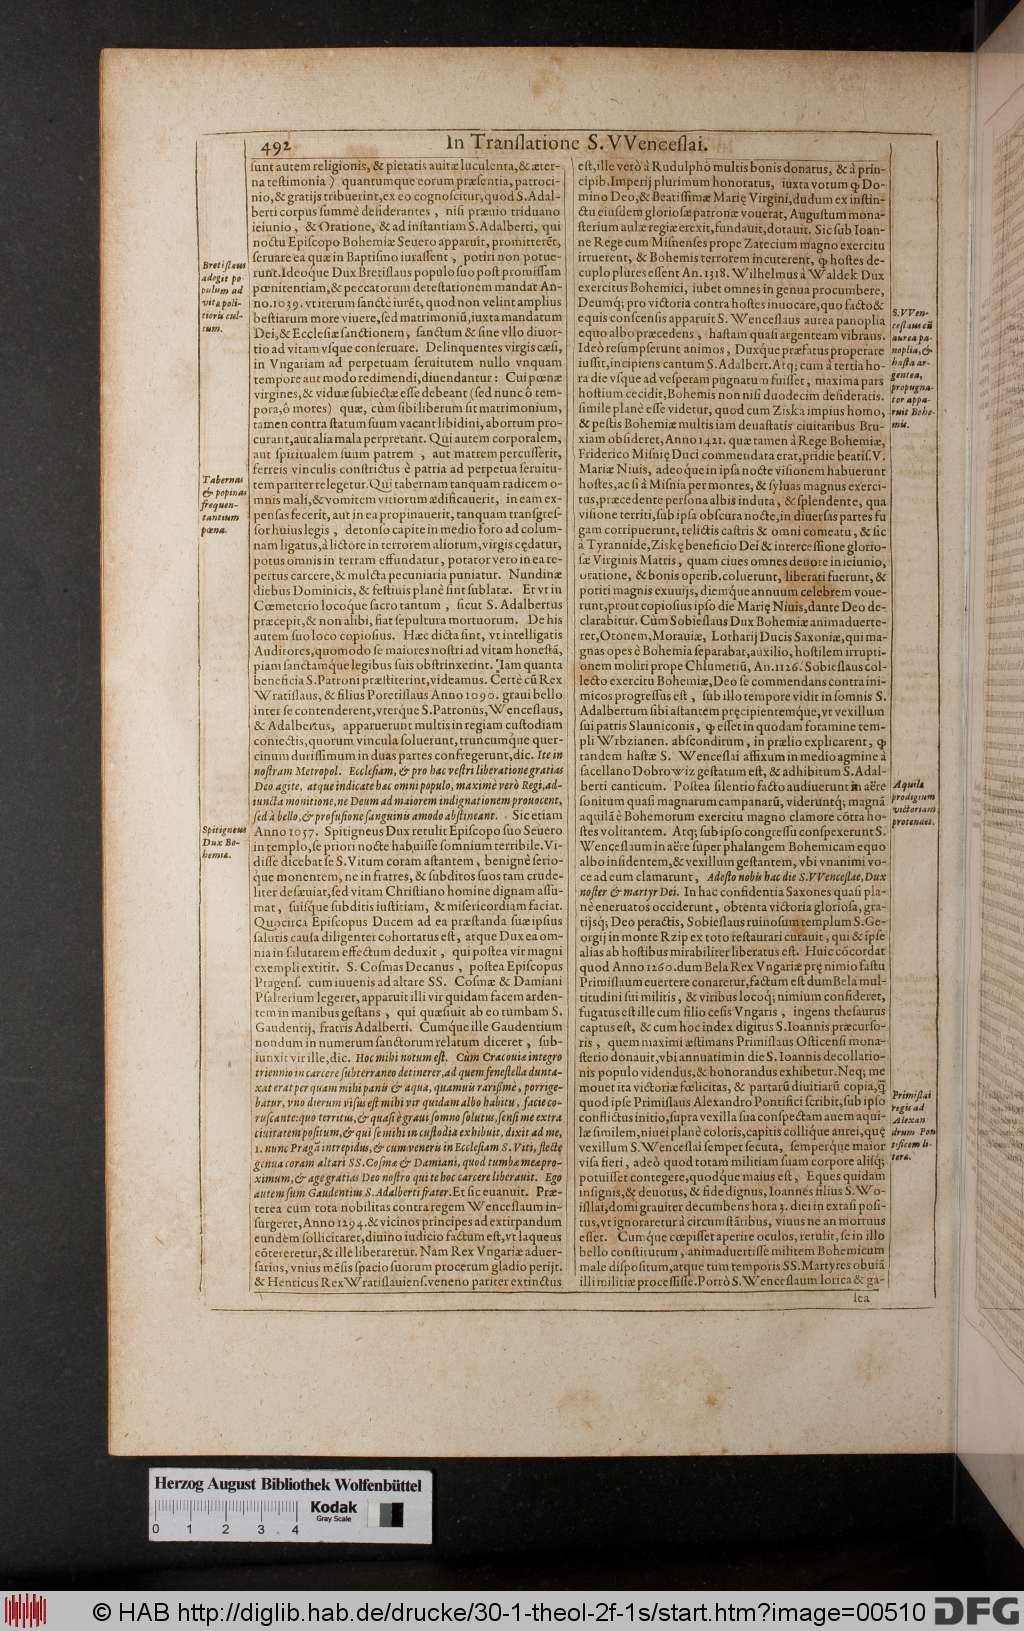 492
In Translatione S. VVenceslai.
sunt autem religionis, & pietatis avitæ luculenta, & æter-
na testimonia) quantumque eorum præsentia, patroci-
nio, & gratijs tribuerint, ex eo cognoscitur, quòd S. Adal-
berti corpus summè desiderantes, nisi præuio triduano
ieiunio, & Oratione, & ad instantiam S. Adalberti, qui
noctu Episcopo Bohemiæ Seuero apparuit, promitterẽt,
seruare ea quæ in Baptismo iurassent, potiri non potue-
runt. Ideoque Dux Bretislaus populo suo post promissam
pœnitentiam, & peccatorum detestationem mandat An-
no. 1039. vt iterum sanctè iurẽt, quod non velint amplius
bestiarum more viuere, sed matrimoniũ, iuxta mandatum
Dei, & Ecclesiæ sanctionem, sanctum & sine vllo diuor-
tio ad vitam vsque conseruare. Delinquentes virgis cæsi,
in Vngariam ad perpetuam seruitutem nullo vnquam
tempore aut modo redimendi, diuendantur: Cui pœnæ
virgines, & viduæ subiectæ esse debeant (sed nunc ô tem-
pora, ô mores) quæ, cùm sibi liberum sit matrimonium,
tamen contra statum suum vacant libidini, abortum pro-
curant, aut alia mala perpretant. Qui autem corporalem,
aut spiritualem suum patrem, aut matrem percusserit,
ferreis vinculis constrictus è patria ad perpetua seruitu-
tem pariter relegetur. Qui tabernam tanquam radicem o-
mnis mali, & vomitem vitiorum ædificauerit, in eam ex-
pensas fecerit, aut in ea propinauerit, tanquam transgres-
sor huius legis, detonso capite in medio foro ad colum-
nam ligatus, à lictore in terrorem aliorum, virgis cędatur,
potus omnis in terram effundatur, potator vero in ea re-
pertus carcere, & mulcta pecuniaria puniatur. Nundinæ
diebus Dominicis, & festiuis planè sint sublatæ. Et vt in
Cœmeterio locoque sacro tantum, sicut S. Adalbertus
præcepit, & non alibi, fiat sepultura mortuorum. De his
autem suo loco copiosius. Hæc dicta sint, vt intelligatis
Auditores, quomodo se maiores nostri ad vitam honestã,
piam sanctamq́ue legibus suis obstrinxerint. Iam quanta
beneficia S. Patroni præstiterint, videamus. Certè cũ Rex
Wratislaus, & filius Poretislaus Anno 1090. graui bello
inter se contenderent, vterque S. Patronus, Wenceslaus,
& Adalbertus, apparuerunt multis in regiam custodiam
coniectis, quorum vincula soluerunt, truncumq́ue quer-
cinum durissimum in duas partes confregerunt, dic. Ite in
nostram Metropol. Ecclesiam, & pro hac vestri liberatione gratias
Deo agite, atque indicate hac omni populo, maximè verò Regi, ad-
iuncta monitione, ne Deum ad maiorem indignationem prouocent,
sed à bello, & profusione sanguinis amodo abstineant. Sic etiam
Anno 1057. Spitigneus Dux retulit Episcopo suo Seuero
in templo, se priori nocte habuisse somnium terribile. Vi-
disse dicebat se S. Vitum coram astantem, benignè serio-
q́ue monentem, ne in fratres, & subditos suos tam crude-
liter desæuiat, sed vitam Christiano homine dignam assu-
mat, suisq́ue subditis iustitiam, & misericordiam faciat.
Quocirca Episcopus Ducem ad ea præstanda suæ ipsius
salutis causa diligenter cohortatus est, atque Dux ea om-
nia in salutarem effectum deduxit, qui postea vir magni
exempli extitit. S. Cosmas Decanus, postea Episcopus
Pragens. cum iuuenis ad altare SS. Cosmæ & Damiani
Psalterium legeret, apparuit illi vir quidam facem arden-
tem in manibus gestans, qui quæsiuit ab eo tumbam S.
Gaudentij, fratris Adalberti. Cumq́ue ille Gaudentium
nondum in numerum sanctorum relatum diceret, sub-
iunxit vir ille, dic. Hoc mihi notum est. Cùm Cracouiæ integro
triennio in carcere subterraneo detinerer, ad quem fenestella dunta-
xat erat per quam mihi panis & aqua, quamuis rarißimè, porrige-
batur, vno dierum visus est mihi vir quidam albo habitu, facie co-
ruscante: quo territus, & quasi è graui somno solutus, sensi me extra
ciuitatem positum, & qui se mihi in custodia exhibuit, dixit ad me,
I. nunc Pragã intrepidus, & cum veneris in Ecclesiam S. Viti, flecte
genua coram altari SS. Cosmæ & Damiani, quod tumbæ meæ pro-
ximum, & age gratias Deo nostro qui te hoc carcere liberauit. Ego
autem sum Gaudentius S. Adalberti frater. Et sic euanuit. Præ-
terea cùm tota nobilitas contra regem Wenceslaum in-
surgeret, Anno 1294. & vicinos principes ad extirpandum
eundem sollicitaret, diuino iudicio factum est, vt laqueus
cõtereretur, & ille liberaretur. Nam Rex Vngariæ aduer-
sarius, vnius mẽsis spacio suorum procerum gladio perijt.
& Henricus Rex Wratislauiens. veneno pariter extinctus
Bretislaus
adegit po-
pulum ad
vitæ poli-
tioris cul-
tum.
Tabernas
& popinas
frequen-
tantium
pœna.
Spitigneus
Dux Bo-
hemiæ.
est, ille verò à Rudulpho multis bonis donatus, & à prin-
cipib. Imperij plurimum honoratus, iuxta votum ꝙ Do-
mino Deo, & Beatissimæ Marię Virgini, dudum ex instin-
ctu eiusdem gloriosæ patronæ vouerat, Augustum mona-
sterium aulæ regiæ erexit, fundauit, dotauit. Sic sub Ioan-
ne Rege cum Misnenses prope Zatecium magno exercitu
irruerent, & Bohemis terrorem incuterent, ꝙ hostes de-
cuplo plures essent An. 1318. Wilhelmus à Waldek Dux
exercitus Bohemici, iubet omnes in genua procumbere,
Deumq́; pro victoria contra hostes inuocare, quo facto &
equis conscensis apparuit S. Wenceslaus aurea panoplia
equo albo præcedens, hastam quasi argenteam vibrans.
Ideò resumpserunt animos, Duxq́ue præfatus properare
iussit, incipiens cantum S. Adalbert. Atq; cum à tertia ho-
ra die vsque ad vesperam pugnatum fuisset, maxima pars
hostium cecidit, Bohemis non nisi duodecim desideratis.
simile planè esse videtur, quod cum Ziska impius homo,
& pestis Bohemiæ multis iam deuastatis ciuitatibus Bru-
xiam obsideret, Anno 1421. quæ tamen à Rege Bohemiæ,
Friderico Misnię Duci commendata erat, pridie beatiss. V.
Mariæ Niuis, adeo que in ipsa nocte visionem habuerunt
hostes, ac si à Misnia per montes, & syluas magnus exerci-
tus, præcedente persona albis induta, & splendente, qua
visione territi, sub ipsa obscura nocte, in diuersas partes fu
gam corripuerunt, relictis castris & omni comeatu, & sic
à Tyrannide, Ziskę beneficio Dei & intercessione glorio-
sæ Virginis Matris, quam ciues omnes deuote in ieiunio,
oratione, & bonis operib. coluerunt, liberati fuerunt, &
potiti magnis exuuijs, diemq́ue annuum celebrem voue-
runt, prout copiosius ipso die Marię Niuis, dante Deo de-
clarabitur. Cùm Sobieslaus Dux Bohemiæ animaduerte-
ret, Otonem, Morauiæ, Lotharij Ducis Saxoniæ, qui ma-
gnas opes è Bohemia separabat, auxilio, hostilem irrupti-
onem moliri prope Chlumetiũ, An. 1126. Sobieslaus col-
lecto exercitu Bohemiæ, Deo se commendans contra ini-
micos progressus est, sub illo tempore vidit in somnis S.
Adalbertum sibi astantem pręcipientemq́ue, vt vexillum
sui patris Slauniconis, ꝙ esset in quodam foramine tem-
pli Wrbzianen. absconditum, in prælio explicarent, ꝙ
tandem hastæ S. Wenceslai affixum in medio agmine à
sacellano Dobrowiz gestatum est, & adhibitum S. Adal-
berti canticum. Postea silentio facto audiuerunt in aëre
sonitum quasi magnarum campanarũ, videruntq́; magnã
aquilã è Bohemorum exercitu magno clamore cõtra ho-
stes volitantem. Atq; sub ipso congressu conspexerunt S.
Wenceslaum in aëre super phalangem Bohemicam equo
albo insidentem, & vexillum gestantem, vbi vnanimi vo-
ce ad eum clamarunt, Adesto nobis hac die S. VVenceslae, Dux
noster & martyr Dei. In hac confidentia Saxones quasi pla-
nè eneruatos occiderunt, obtenta victoria gloriosa, gra-
tijsq́; Deo peractis, Sobieslaus ruinosum templum S. Ge-
orgij in monte Rzip ex toto restaurari curauit, qui & ipse
alias ab hostibus mirabiliter liberatus est. Huic cõcordat
quod Anno 1260. dum Bela Rex Vngariæ prę nimio fastu
Primislaum euertere conaretur, factum est dum Bela mul-
titudini sui militis, & viribus locoq́; nimium confideret,
fugatus est ille cum filio cesis Vngaris, ingens thesaurus
captus est, & cum hoc index digitus S. Ioannis præcurso-
ris, quem maximi æstimans Primislaus Osticensi mona-
sterio donauit, vbi annuatim in die S. Ioannis decollatio-
nis populo videndus, & honorandus exhibetur. Neq; me
mouet ita victoriæ fœlicitas, & partarũ diuitiarũ copia, q̃
quod ipse Primislaus Alexandro Pontifici scribit, sub ipso
conflictus initio, supra vexilla sua conspectam auem aqui-
læ similem, niuei planè coloris, capitis collique aurei, quę
vexillum S. Wenceslai semper secuta, semperq́ue maior
visa fieri, adeò quod totam militiam suam corpore alisq́;
potuisset contegere, quodq́ue maius est, Eques quidam
insignis, & deuotus, & fide dignus, Ioannes filius S. Wo-
isllai, domi grauiter decumbens hora 3. diei in extasi posi-
tus, vt ignoraretur à circumstãtibus, viuus ne an mortuus
esset. Cumq́ue cœpisset aperire oculos, retulit, se in illo
bello constitutum, animaduertisse militem Bohemicum
male dispositum, atque tum temporis SS. Martyres obuiã
illi militiæ processisse. Porrò S. Wenceslaum lorica & ga-
lea
S. VVen-
ceslaus cũ
aurea pa-
noplia, &
hasta ar-
gentea,
propugna-
tor appa-
ruit Bohe-
mis.
Aquila
prodigium
victoriam
protendes.
Primislai
regis ad
Alexan
drum Pon
tificem li-
teræ.
Herzog August Bibliothek Wolfenbüttel
0 1 2 3 4
Kodak
Gray Scale
© HAB http://diglib.hab.de/drucke/30-1-theol-2f-1s/start.htm?image=00510
DFG